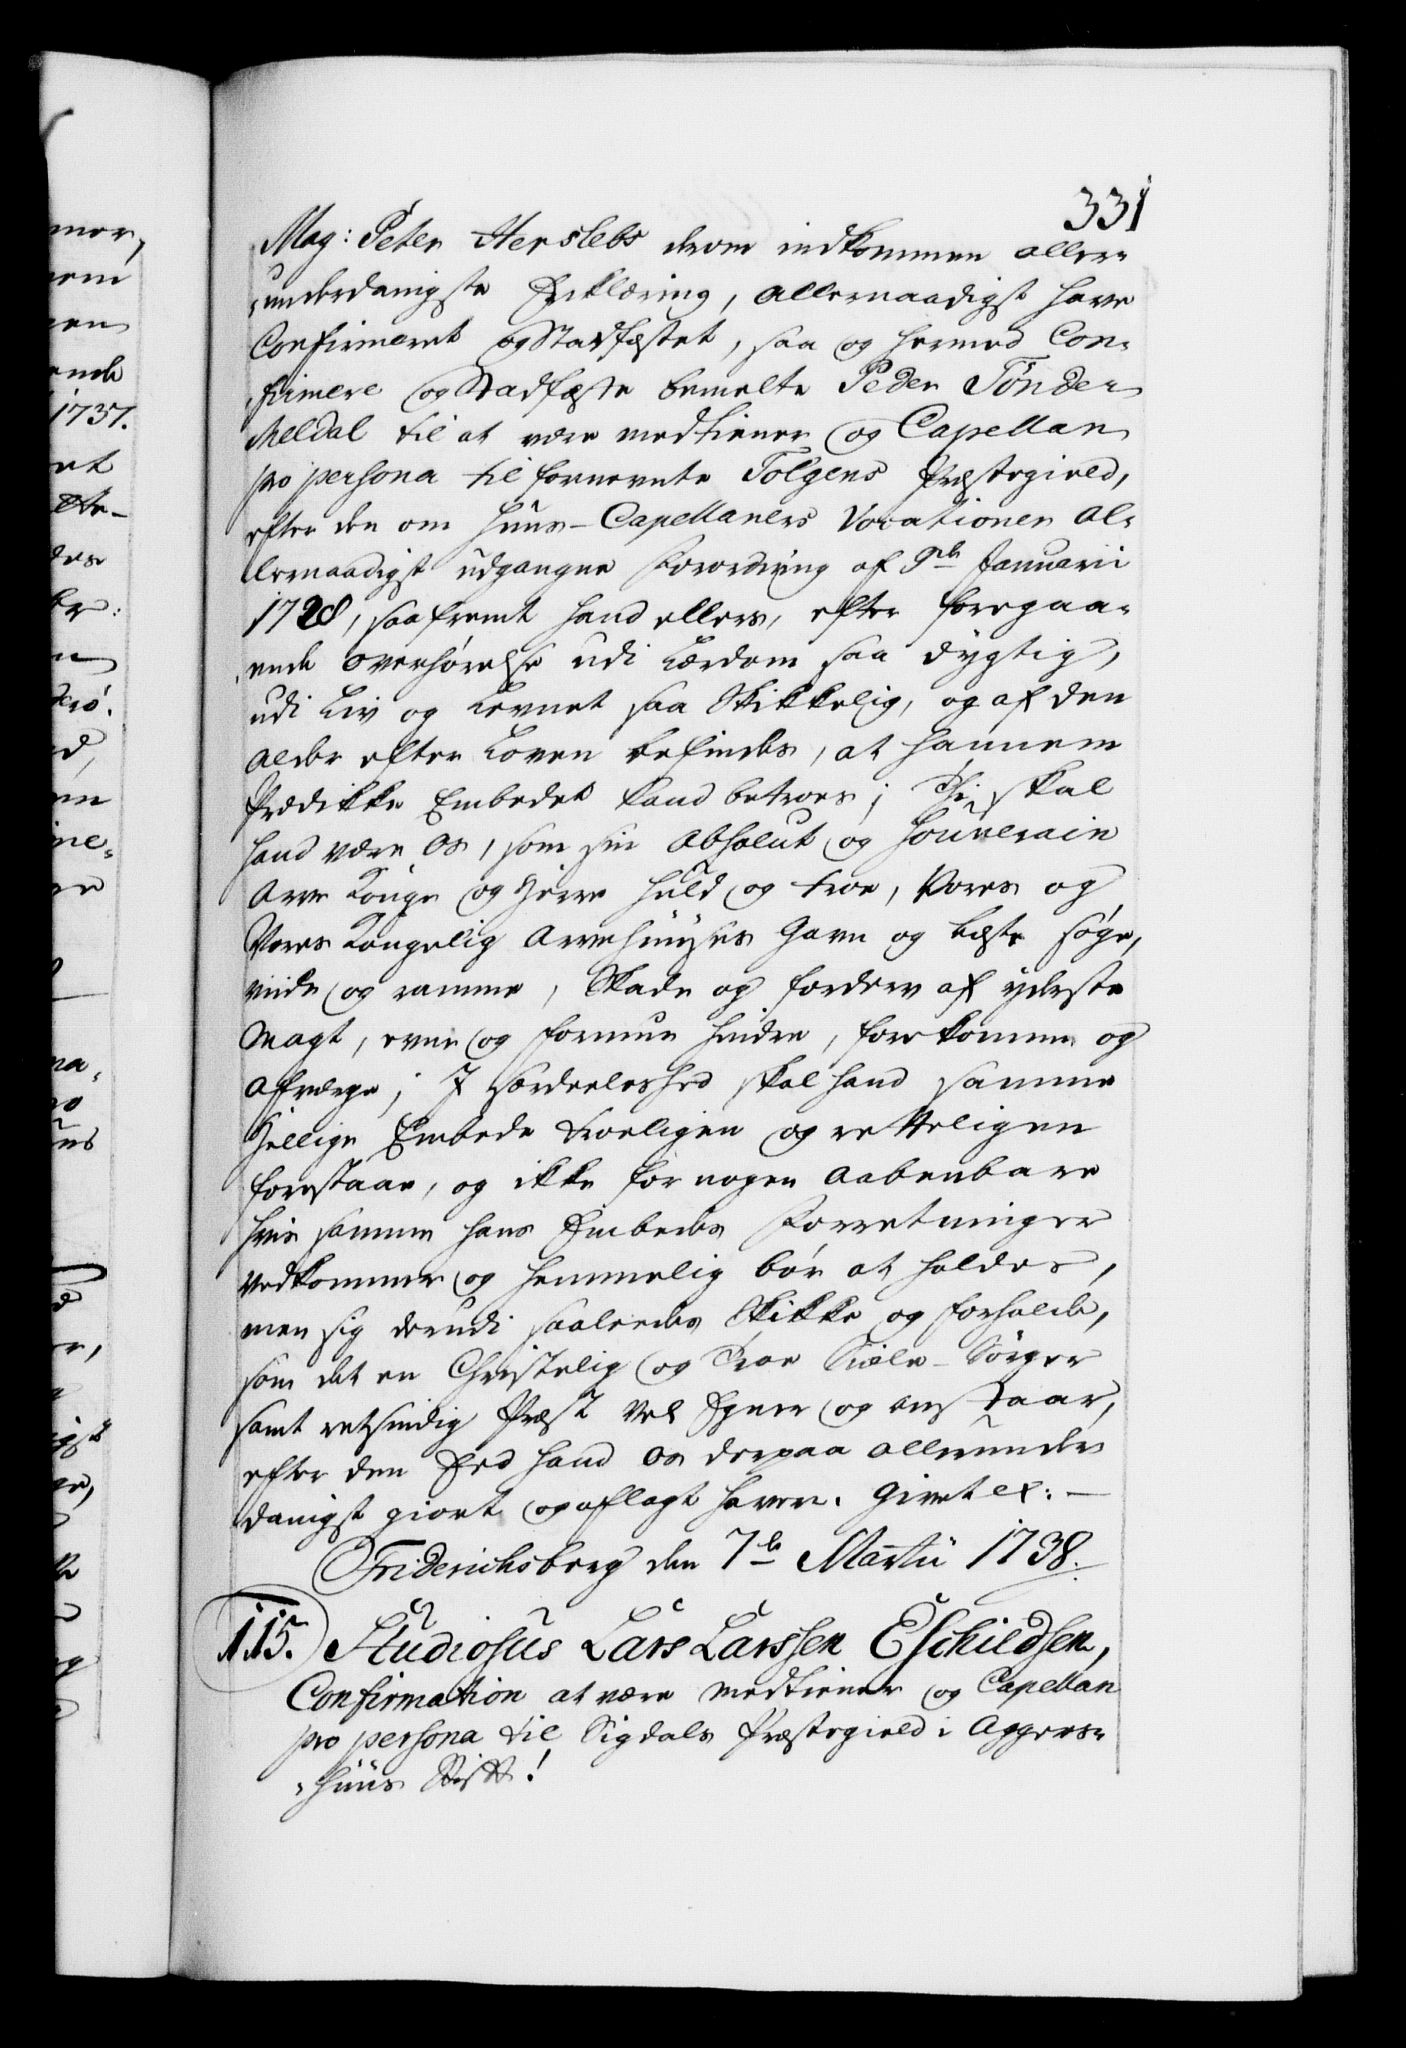 331
Mag: Peter Herslebs derom indkommen aller-
underdanigste Erklæring, allernaadigst have
Confirmeret og Stadfæstet, saa og hermed Con-
firmere og Stadfæste bemelte Peder Tönder
Meldal til at være medtiener og Capellan
pro persona til fornevnte Tolgens Præstegield,
efter den om Huus-Capellaners Vocationer al-
lernaadigst udgangne Forordning af 9de Januarii
1728, saafremt hand ellers, efter foregaa-
ende overhørelse udi Lærdom saa dygtig,
udi Liv og Levnet saa Skikkelig, og af den
alder efter Loven befindes, at hannem
Prædikke Embedet kand betroes; Thi skal
hand være Os, som sin Absolut og Souverain
Arve Konge og Herre huld og troe, Vores og
Vores Kongelig Arvehuuses Gavn og beste søge,
viide og ramme, Skade og forderv af yderste
Magt, evne og formue hindre, forekomme og
afværge; J særdeeleshed skal hand samme
Hellige Embede troeligen og retteligen
forestaae, og ikke for nogen aabenbare
hvis samme hans Embedes Forretninger
vedkommer og hemmelig bør at holdes,
men sig derudi saaledes Skikke og forholde,
som det en Christelig og Troe Siæle-Sørger
samt retsindig Præst vel Egner og anstaar,
efter den Eed hand Os derpaa allerunder
danigst giort og aflagt haver. Givet ex:
Friderichsberg den 7de Martii 1738.
115. Studiosus Lars Larssen Eschildsen,
Confirmation at være Medtiener og Capellan
pro persona til Sigdals Præstegield i Aggers-
huus Stift!